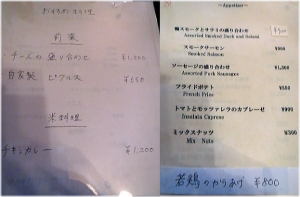 おすすめ料理
前菜
チーズの盛り合わせ ¥1,200
自家製 ピクルス ¥650
米料理
チキンカレー ¥1,200
~Appetizer~
鴨スモークとサラミの盛り合わせ
Assorted Smoked Duck and Salami
スモークサーモン
Smoked Salmon
ソーセージの盛り合わせ ¥1,300
Assorted Pork Sausages
フライドポテト ¥550
French Fries
トマトとモッツァレラのカプレーゼ ¥900
Insalata Caprese
ミックスナッツ ¥300
Mix Nuts
若鶏のからあげ ¥800